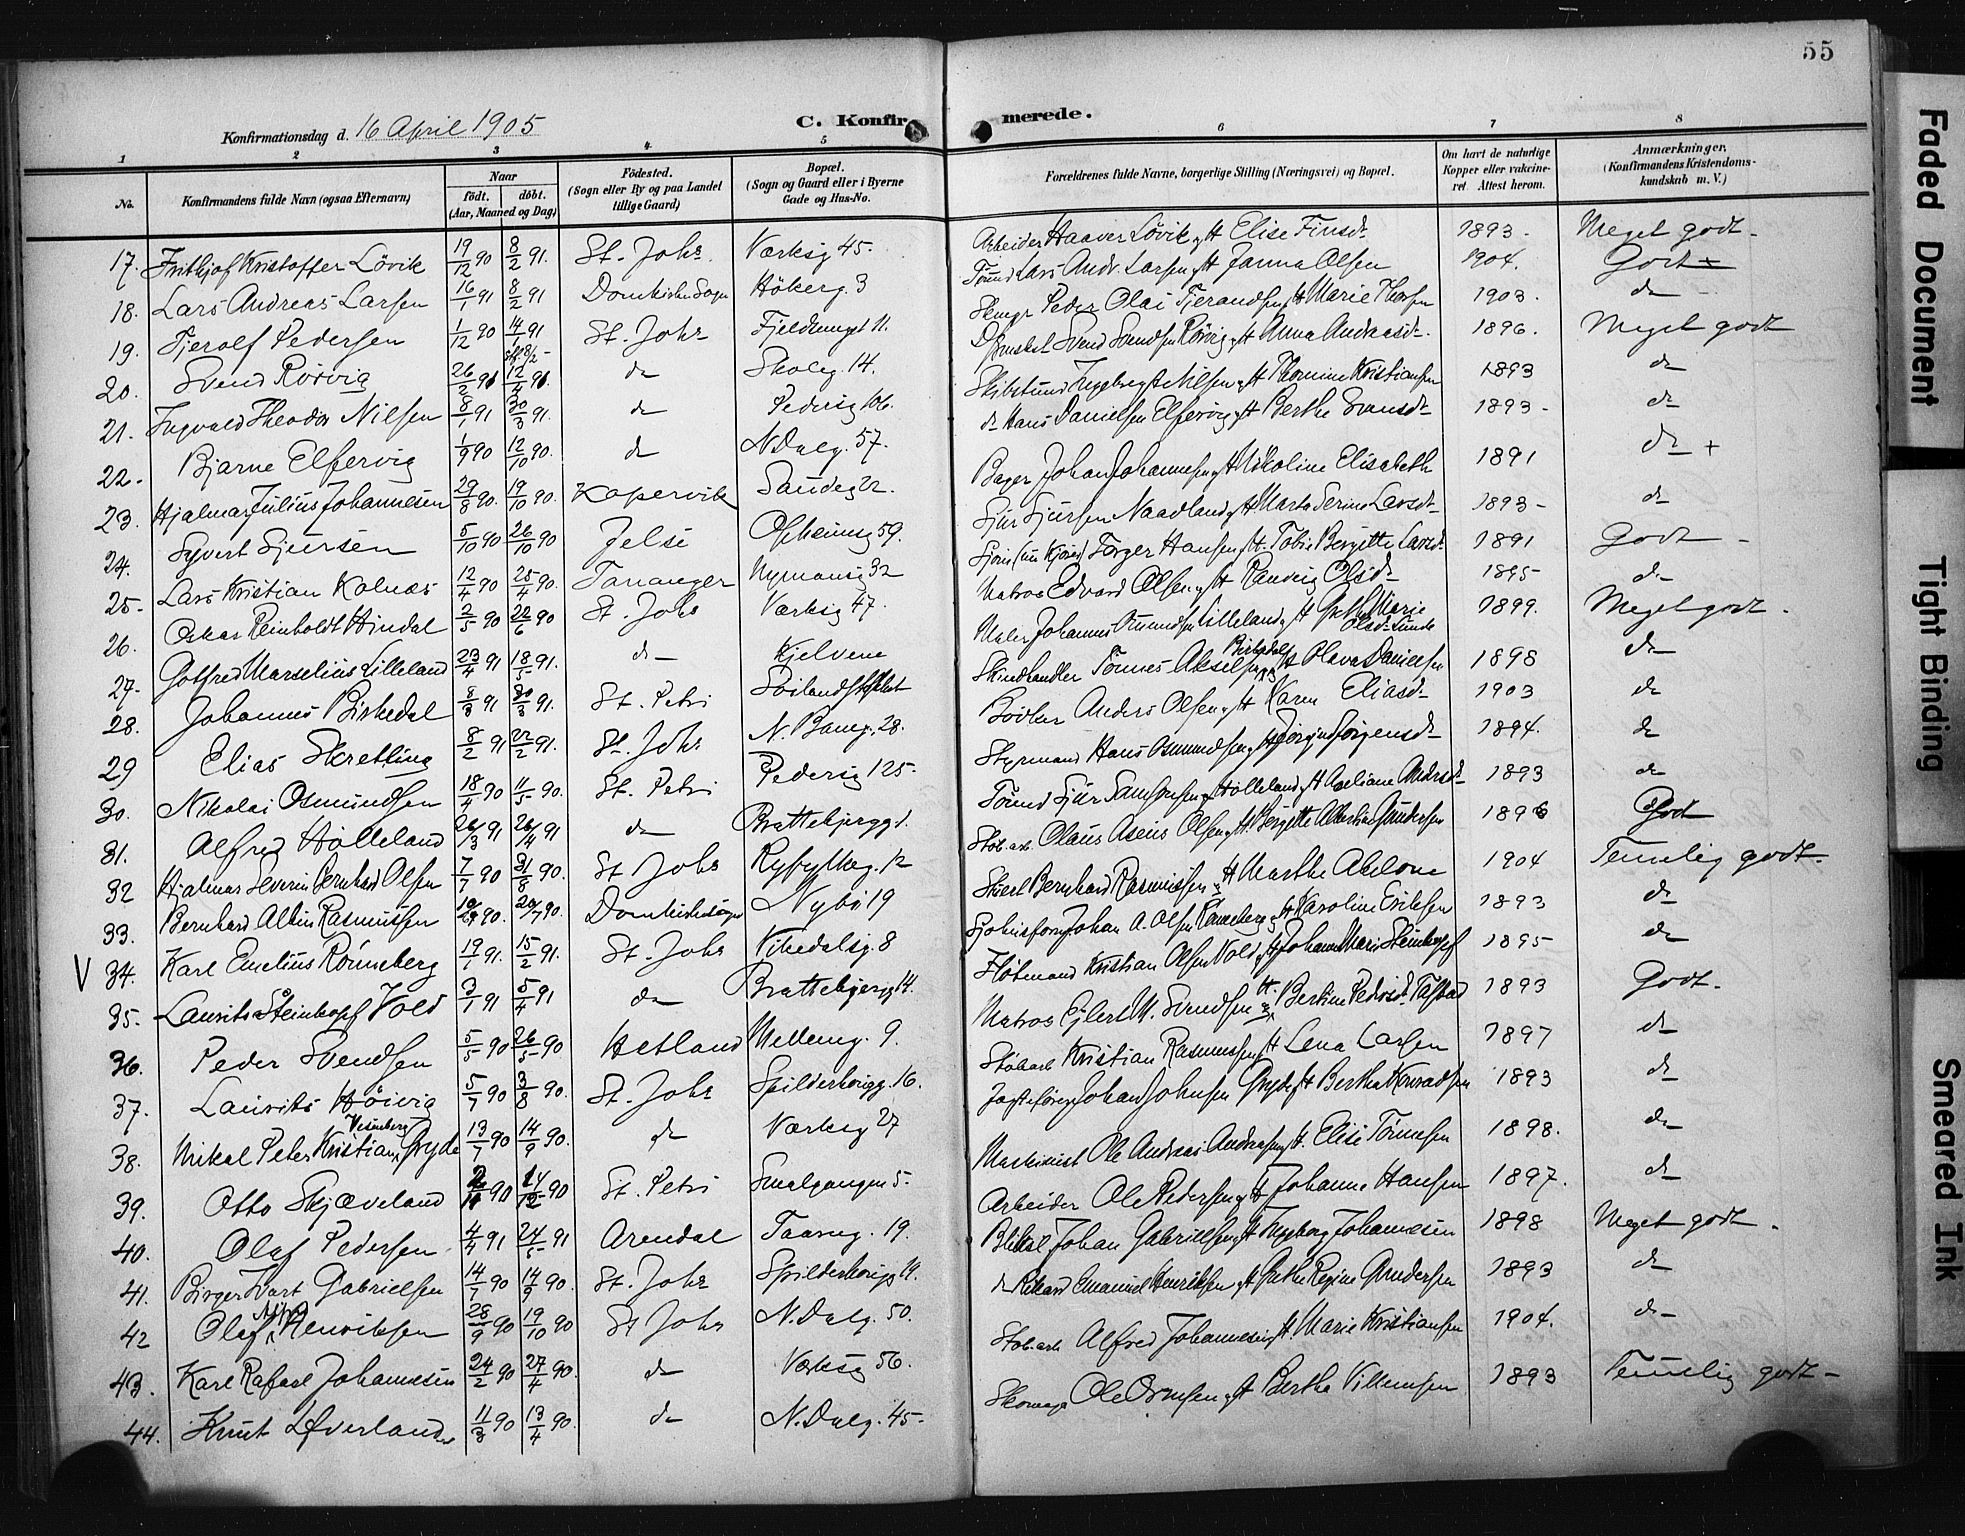 55
Konfirmationsdag d. 16 April 1905
C. Konfirmerede.
1 2 3 4 5 6 7 8
No. Konfirmandens fulde Navn (ogsaa Efternavn) Naar født. døbt. (Aar, Maaned og Dag) Fødested. (Sogn eller By og paa Landet tillige Gaard) Bopæl. (Sogn og Gaard eller i Byerne Gade og Hus-No. Forældrenes fulde Navne, borgerlige Stilling (Næringsvei) og Bopæl. Om havt de naturlige Kopper eller vakcineret. Attest herom. Anmærkninger. (Konfirmandens Kristendomskundskab m. V.)
17. Frithjof Kristoffer Lövik 19/12 90 8/2 91. St. Johs. Verksg 45. Arbeider Haaver Lövik og H Elise Finsd. 1893. Meget godt.
18. Lars Andreas Larsen 16/1 91 8/2 91 Domkirkens Sogn Hökerg. 3 Tömmd Lars Andr. Larsen og H Janna Olsen 1904. Godt
19. Tjerolf Pedersen 1/12 90 14/1 91 St. Johs Fjeldtunget 11. Peder Olai Tjerandsen og H Marie Thorsen 1903. do
20. Svend Rörvig 26/2 91 12/4 91. do Skoleg. 14. Svend Svendsen Rörvig og H Anna Andreasd. 1896. Meget godt
21. Ingvald Theodor Nilsen 8/1 91 30/3 91. do Pedersg 106. Nilsen og H Thomine Kristiansen 1893 do
22. Bjarne Elfervig 1/9 90 12/10 90. do N Dalg. 57. do Hans Danielsen Elfervig og H Berthe Svensd. 1893 do
23. Hjalmar Julius Johannesen 29/8 90. 19/10 90. Kopervik Sandeg 22. Bager Johan Johannesen og H Nikoline Elisabeth 1891 do +
24. Syvert Sjursen 5/10 90 26/10 90 Jelse Ofsheimsg 59. Sjur Sjursen Naadland og H Marta Serine Larsd. 1893 do
25. Lars Kristian Kolnæs 12/4 90 25/4 90. Tananger Nymansg 32 Torger Hansen og H. Tobie Bergitte Larsd. 1891 Godt
26. Oskar Reinholdt Hindal 2/5 90 22/6 90 St. Johs Verksg 47. Matros Edvard Olsen og H Ranveig Olsd. 1895 do
27. Gotfred Marselius Lilleland 23/4 91 18/5 91. do Kjelvene Maler Johannes Omundsen Lilleland og H Grethe Marie Olsd. Sunde 1899. Meget godt.
28. Johannes Birkedal 8/3 91 30/3 91. St. Petri Soilandsstykket Skindhandler Tönnes Akselsen Birkedal og H Olava Danielsen 1898 do
29 Elias Skretting 8/2 91 22/2 91. St. Johs N. Baneg. 28. Bödker Anders Olsen og H Karen Eliasd. 1903 do
30. Nikolai Osmundsen 18/4 90 11/5 90. St. Petri Pedersg 125. Styrmand Hans Osmundsen og H Jörgine Jörgensd. 1894. do
31. Alfred Hölleland 26/3 91 26/4 91 do Brattebjergg 1. Tömmd Sjur Samsonsen Hölleland og H Andersd. 1893 do
32 Hjalmar Severin Bernhard Olsen 7/7 90 31/8 90. St Johs Ryfylkeg. 12 Stob. arb. Olaus Aseus Olsen og H. Bergitte Albertine Gundersen 1896 Godt
33. Bernhard Albin Rasmussen 20/7 90. Domkirkesogn Nybö 19 Bernhard Rasmussen og H Marthe Abelone 1904 Temelig godt.
V 34. Karl Emelius Rönneberg 19/1 91. 15/2 91. St. Johs Vikedalsg. 8 Johan A. Olsen Rönneberg og H Karoline Eriksen 1893 do
35. Laurits Steinkopf Vold 3/1 91 5/4 91 do Brattebjergg 14. Flötmand Kristian Olsen Vold og H Johanne Marie Steinkopf 1895 do
36. Peder Svendsen 5/5 90 26/5 90 Hetland Mellemg. 9. Matros Ejlert M. Svendsen og H. Bertine Pedersd. Tastad 1893 Godt.
37. Laurits Höivig 5/7 90 3/8 90. St. Johs Spilderhougg. 16. Stobarb Kristian Rasmussen og H Lena Larsen 1897 do
38. Mikal Peter Kristian Vesenberg Gryde 13/7 90 14/9 90. do Værksg 27 Jagtefören Johan Johnsen Gryde og H Bertha Konradsen 1893 do
39. Otto Skjæveland 2/11 90 14/12 90 St. Petri Smalgangen 5. Maskinist Ole Andreas Andreasen og H. Elise Tönnesen 1898. do
40. Olaf Pedersen 4/4 91 24/5 91 Arendal Taarng. 19. Arbeider Ole Pedersen og H Johanne Hansen 1897. do
41. Birger Ivart Gabrielsen 14/7 90 14/9 90. St. Johs Spilderhougg 14. Johan Gabrielsen og H Ingeborg Johannesen 1898 Meget godt.
42 Olaf Henriksen 28/9 90 19/10 90 St Johs N. Dalg. 50. do Rikard Emanuel Henriksen og H Grethe Regine Gundersen 1893 do
43. Karl Rafael Johannesen 24/2 90 27/4 90. do Værksg 56. Stob. arb Alfred Johannesen og H. Marie Kristiansen 1904. do
44. Knut Øverland 11/3 90 13/4 90. do N. Dalg. 45. Skomager Ole Ormsen og H Bertha Villumsen 1893 Temelig godt
Faded Document
Tight Binding
Smeared Ink